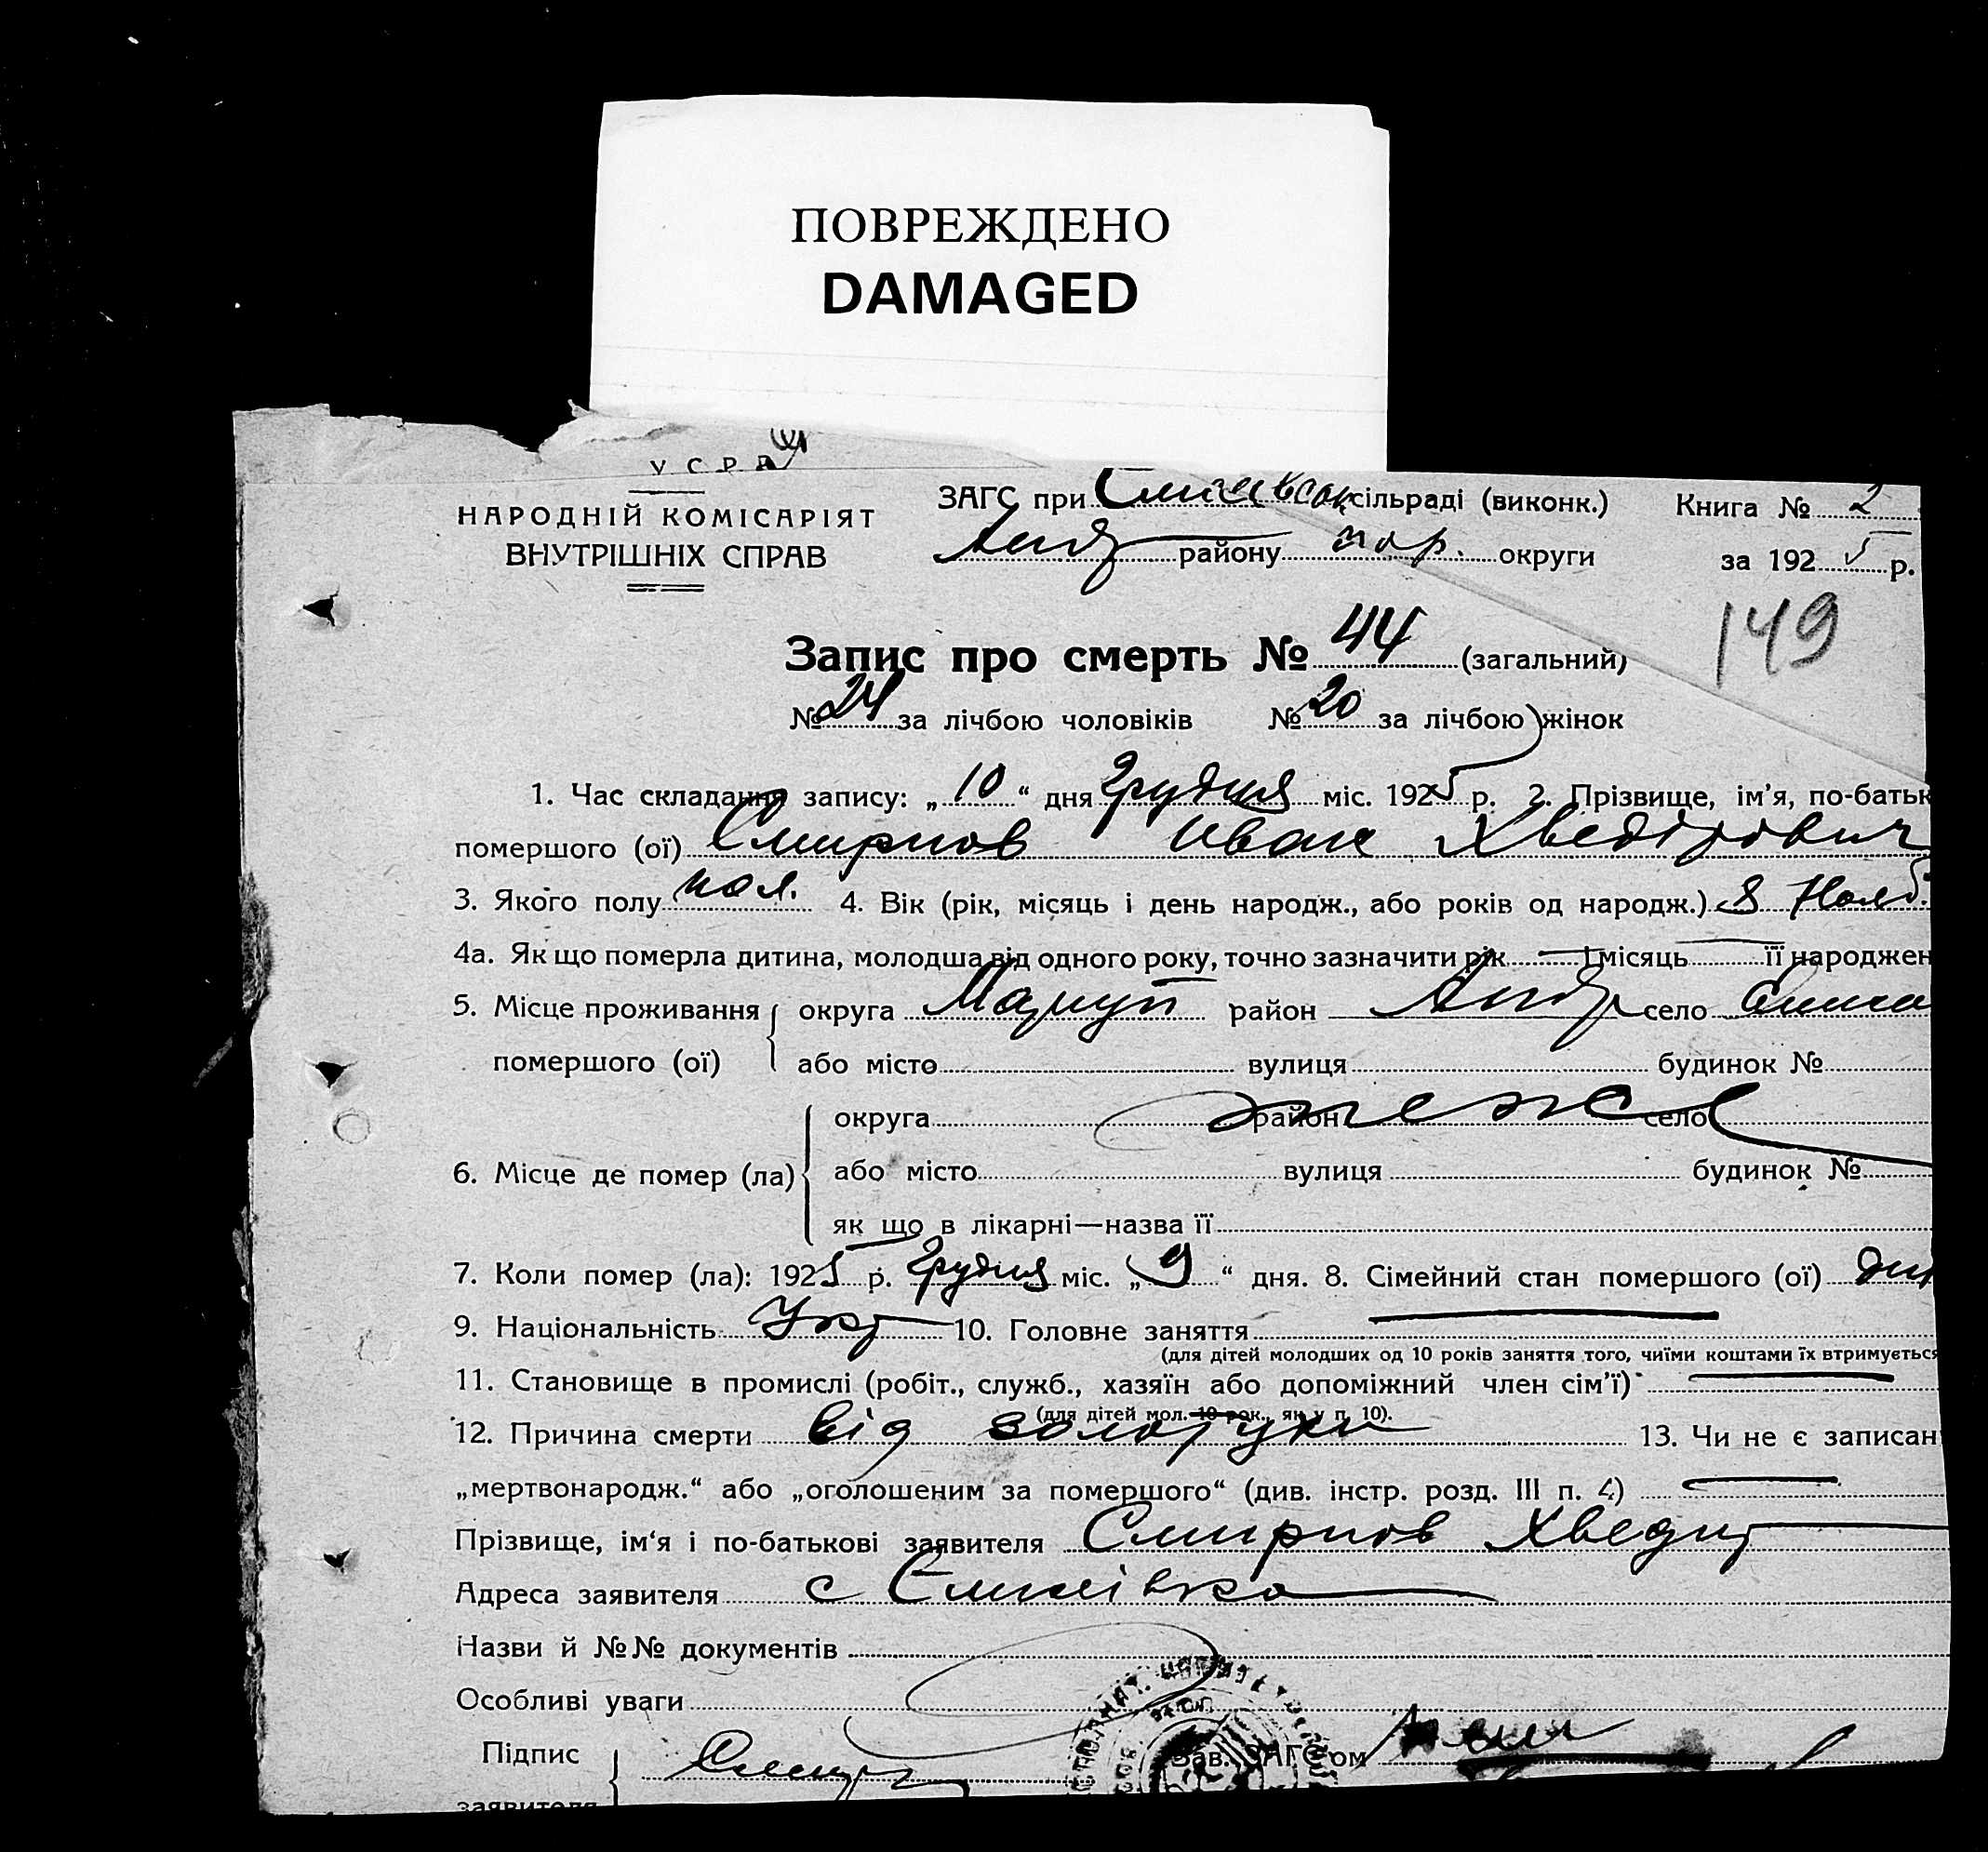 ПОВРЕЖДЕНО
DAMAGED
УСРР
НАРОДНІЙ КОМІСАРІЯТ
ВНУТРІШНІХ СПРАВ
ЗАГС при сільраді (виконк.)
Андр району мар. округи
Книга № 2
за 1925 р.
149
Запис про смерть № 44 (загальний)
№ 24 за лічбою чоловіків № 20 за лічбою жінок
1. Час складання запису: „10“ дня Грудня міс. 1925 р. 2. Прізвище, ім'я, по-батьк
помершого (ої) Смирнов Иван Хведірович
3. Якого полу чол. 4. Вік (рік, місяць і день народж., або років од народж.) 8 Нояб.
4а. Як що померла дитина, молодша від одного року, точно зазначити рік — і місяць — її народжен
5. Місце проживання помершого (ої) округа Маріуп район Андр село
або місто вулиця будинок №
6. Місце де помер (ла) округа район село
теж
або місто вулиця будинок №
як що в лікарні—назва її
7. Коли помер (ла): 1925 р. Грудня міс. „9“ дня. 8. Сімейний стан помершого (ої) дит
9. Національність Укр 10. Головне заняття —
(для дітей молодших од 10 років заняття того, чиїми коштами їх втримується
11. Становище в промислі (робіт., служб., хазяїн або допоміжний член сім'ї) —
(для дітей мол. 10 рок., як у п. 10).
12. Причина смерти від золотухи 13. Чи не є записан
„мертвонародж.“ або „оголошеним за помершого“ (див. інстр. розд. III п. 4) —
Прізвище, ім'я і по-батькові заявителя Смирнов Хведир
Адреса заявителя с
Назви й №№ документів
Особливі уваги
Підпис
заявителя
Зав. ЗАГС'ом